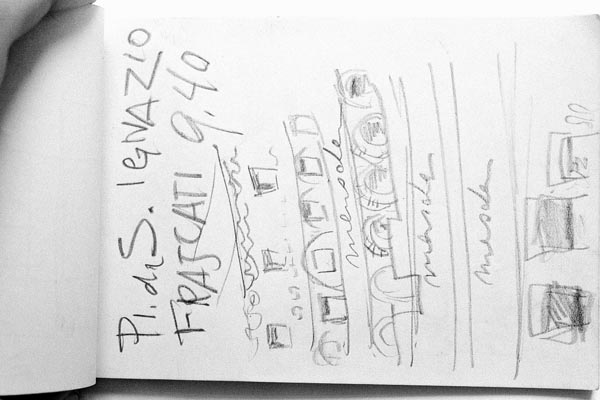 Pl. di S. IGNAZIO
FRASCATI 9.40
mensole
mensole
mensole